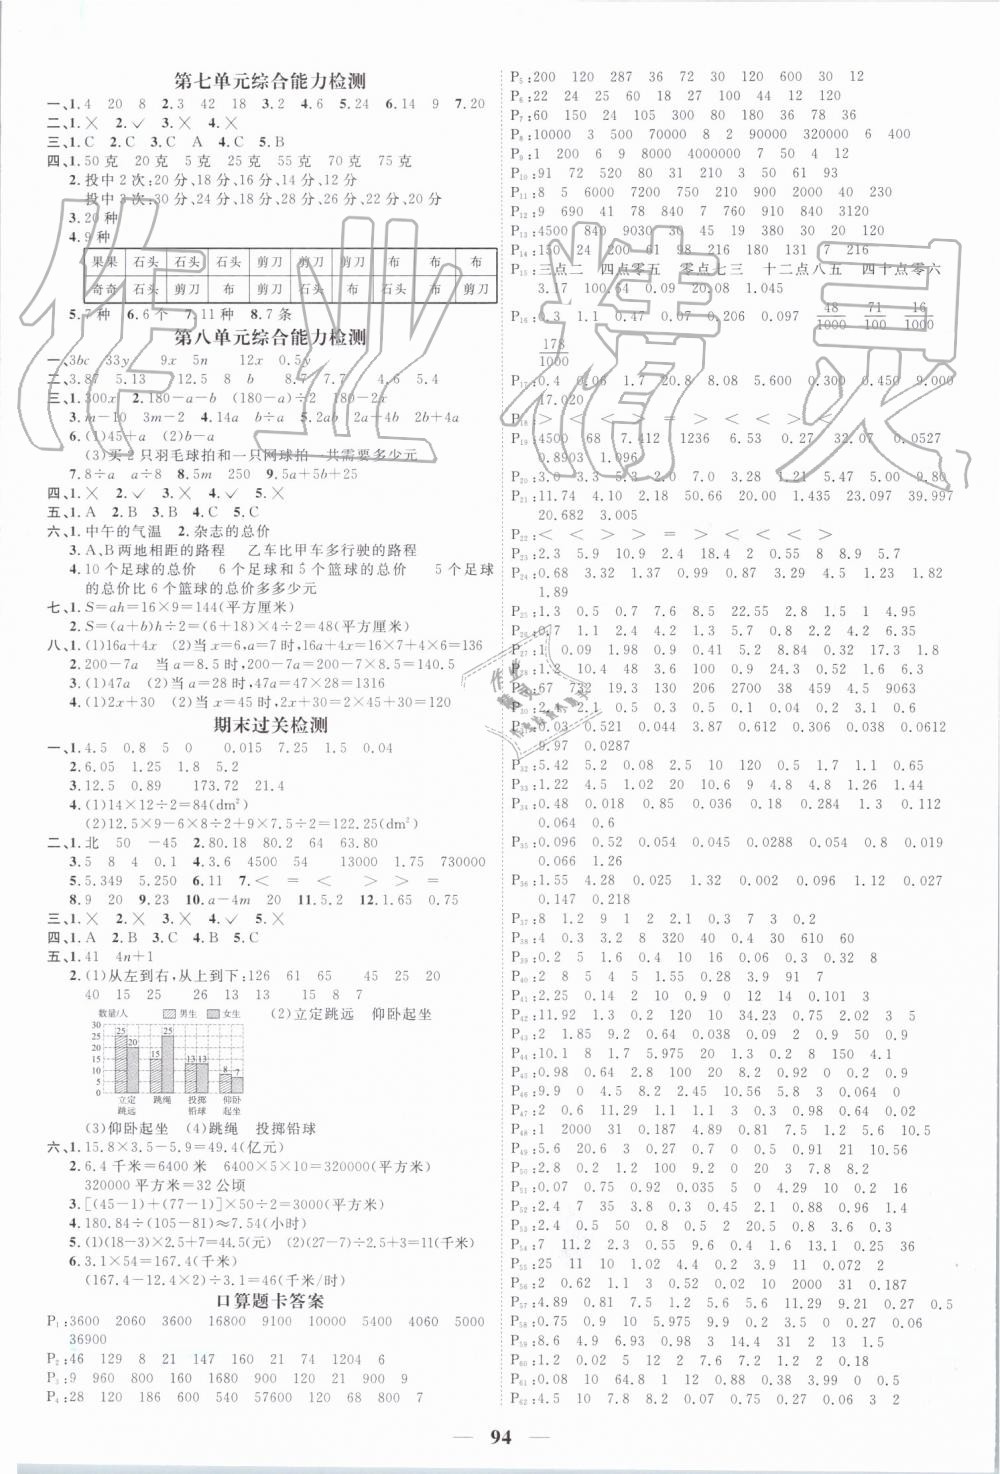 第七单元综合能力检测
一、1.4 20 8 2.3 42 18 3.2 4.6 5.24 6.14 9 7.20
二、1.╳ 2.✓ 3.╳ 4.╳
三、1.C 2.C 3.C A 4.C 5.B
四、1.50克 20克 5克 25克 55克 70克 75克
2.投中2次:20分,18分,16分,18分,16分,14分
投中3次:30分,24分,18分,28分,26分,22分,20分
3.20种
4.9种
果果 石头 石头 石头 剪刀 剪刀 剪刀 布 布 布
奇奇 石头 剪刀 布 剪刀 石头 布 石头 布 剪刀
5.7种 6.6个 7.11种 8.7条
第八单元综合能力检测
一、3bc 33y 9x 5n 12x 0.5y
二、3.87 5.13 12.5 8 b 8.7 7.7 4.6 5.4
三、1.300x 2.180-a-b (180-a)÷2 180-2x
3.m-10 3m-2 4.14a b÷a 5.2ab 2a+2b 2b+4a
6.(1)45+a (2)b-a
(3)买2只羽毛球拍和一只网球拍一共需要多少元
7.8÷a a÷8 8.5m 250 9.5a+5b+25
四、1.╳ 2.✓ 3.╳ 4.✓ 5.╳
五、1.A 2.B 3.B 4.C 5.C
六、1.中午的气温 2.杂志的总价
3.A、B两地相距的路程 乙车比甲车多行驶的路程
4.10个足球的总价 6个足球和5个篮球的总价 5个足球
的总价比6个篮球的总价多多少元
七、1.S=ah=16×9=144(平方厘米)
2.S=(a+b)h÷2=(6+18)×4÷2=48(平方厘米)
八、1.(1)16a+4x (2)当a=7时,16a+4x=16×7+4×6=136
2.200-7a 当a=8.5时,200-7a=200-7×8.5=140.5
3.(1)47a (2)当a=28时,47a=47×28=1316
4.(1)2x+30 (2)当x=45时,2x+30=2×45+30=120
期末过关检测
一、1.4.5 0.8 5 0 0.015 7.25 1.5 0.04
2.6.05 1.25 1.8 5.2
3.12.5 0.89 173.72 21.4
4.(1)14×12÷2=84(dm²)
(2)12.5×9-6×8÷2+9×7.5÷2=122.25(dm²)
二、1.北 50 -45 2.80.18 80.2 64 63.80
3.5 8 4 0.1 4.3.6 4500 54 13000 1.75 730000
5.5.349 5.250 6.11 7.< = < > > =
8.9 20 9.23 10.a-4m 20 11.5.2 12.1.65 0.75
三、1.╳ 2.╳ 3.╳ 4.✓ 5.╳
四、1.A 2.B 3.C 4.B 5.C
五、1.41 4n+1
2.(1)从左到右,从上到下:126 61 65 45 25 20
40 15 25 26 13 13 15 8 7
数量/人 男生 女生 (2)立定跳远 仰卧起坐
30 25 20 15 10 5 0
25 20 15 25 13 13 8 7
立定跳远 跳绳 投掷铅球 仰卧起坐
(3)仰卧起坐 (4)跳绳 投掷铅球
六、1.15.8×3.5-5.9=49.4(亿元)
2.6.4千米=6400米 6400×5×10=320000(平方米)
320000平方米=32公顷
3.[(45-1)+(77-1)]×50÷2=3000(平方米)
4.180.84÷(105-81)≈7.54(小时)
5.(1)(18-3)×2.5+7=44.5(元) (2)(27-7)÷2.5+3=11(千米)
6.3.1×54=167.4(千米)
(167.4-12.4×2)÷3.1=46(千米/时)
口算题卡答案
P1:3600 2060 3600 16800 9100 10000 5400 4060 5000
36900
P2:46 129 8 21 147 160 21 74 1204 6
P3:9 960 800 160 1680 900 120 800 900
P4:28 120 186 600 540 57600 200 98 800 7
P5:200 120 287 36 72 30 120 650 30 12
P6:22 24 25 60 18 27 100 44 12 120
P7:60 150 24 100 300 80 180 36 78 36
P8:10000 3 500 70000 8 2 90000 320000 6 400
P9:1 200 6 9 8000 4000000 7 50 150
P10:91 72 520 80 31 210 3 50 61 93
P11:8 5 6000 7200 750 2900 2000 40 230
P12:9 690 41 78 840 7 760 910 840 3120
P13:4500 840 9030 30 45 19 380 30 20 120
P14:150 24 200 61 98 180 180 131 7 216
P15:三点二 四点零五 零点七三 十二点八五 四十点零六
3.17 100.54 0.09 20.08 1.045
P16:0.3 1.1 0.47 0.07 0.206 0.097 48/1000 71/100 16/1000
178/1000
P17:0.4 0.06 1.7 20.8 8.08 5.600 0.300 0.450 9.000
17.020
P18:> < > > = > < > < <
P19:4500 68 7.412 1236 6.53 0.27 32.07 0.0527
0.8903 1.096
P20:3.0 3.3 5.5 2.0 7.0 3.28 1.21 5.47 5.00 9.80
P21:11.74 4.10 2.18 50.66 20.5 1.435 23.097 39.997
20.682 3.005
P22:< < > > = < = < > >
P23:2.3 5.9 10.9 2.4 18.4 2 0.55 8 8.9 5.7
P24:0.68 3.32 1.37 0.99 0.72 4.15 4.23 1.23 1.82
1.89
P25:1.3 0.5 0.7 7.6 8.5 22.55 2.8 1.5 1 4.95
P26:0.7 1.1 2.4 4.3 5.7 0.8 2.2 4.2 6.35
P27:1 0.09 1.98 0.9 0.41 5.2 8.84 0.32 17.3 1.8
P28:1.2 10.4 48 3.6 100 0.9 24.3 0.52 1.6 6.3
P29:67 732 19.3 130 90 415 78 4.5 9063
P30:2.4 2.1 0.5 0.3 0.21 5.4 0.1 0.2 3.1 0.6
P31:0.03 0.521 0.044 3.87 6.2 0.035 0.038 0.0612
9.97 0.0287
P32:5.42 5.2 0.08 2.5 10 120 0.5 1.7 1.1 0.65
P33:1.22 4.5 1.02 20 10.6 9 4.8 4.8 1.26 1.44
P34:0.48 0.018 0.85 0.035 0.036 0.18 0.284 0.063
0.064 0.6
P35:0.096 0.52 0.054 0.045 0.0288 0.054 0.8 0.039
0.066 1.26
P36:1.55 4.28 0.025 1.32 0.002 0.096 1.12 0.027
0.147 0.218
P37:8 1.2 9 1 2 2.1 0.3 7 3 0.2
P38:4 0.3 3.2 8 320 40 0.4 30 610 60
P39:0.2 5 1.6 0.09 0.3 1.1 0.1 0.3 0.32 8
P40:2 8 5 4 5 1.55 0.28 3.9 91 7
P41:2.25 0.14 2 1.9 0.9 12 14 0.103 9
P42:11.92 1.3 0.2 120 10 34.23 0.75 2.02 3 5
P43:2 1.85 9.2 0.64 0.038 1.9 2.4 9 50 0.9
P44:10.1 8 1.7 5.975 20 1.3 0.2 8 150 4.1
P45:0.8 0.64 2.8 100 20 0.2 0.92 0 0.2 0.9
P46:9.9 0 4.5 8.2 2.4 5.58 3.5 3 0.064 0
P47:2 0.6 11.29 1.1 1.1 3.9 0.98 0.64 0.02
P48:1 2000 31 0.807 4.89 0.81 7.5 1.2 5.6 10.5
P49:5.6 20.6 3 0.27 0.7 0 0.5 0.91 21 10.56
P50:2.8 0.2 1.2 100 8.5 8 0.24 7 0.11
P51:0.07 0.75 0.92 0.035 5 0 4.29 10 0.2 16
P52:2.4 7 35 3.8 0.3 0.45 2.1 0.88 0.96 1.4
P53:2.4 0.5 50 0.8 0.5 2 20.5 0.8 0.3 0.8
P54:7 11.2 2.3 0.55 4.9 1.1 0.135 0.25 36
P55:25 11 10 1.02 4.2 3.2 0.99 7.02 0 2
P56:2 0.62 1.1 3.2 0.2 10 2000 32 0.187
P57:4.89 0.81 7.5 1.2 5.6 3.9 1.2 0.91 0.27 0.5
P58:0.75 0.9 10 5.975 9.9 0.2 3.5 0 0.27 0.06
P59:8.6 4.9 6.9 1.3 3 14.4 2 13 1.5
P60:1.2 0.02 4.5 12 7.6 7.2 1.2 2 0.15
P61:0.08 10 64.8 1 12 0.88 0.38 3.99 0 0.5
P62:4.5 10 7.8 0.2 8 0.75 3.5 0.6 2 1
94
作业精灵